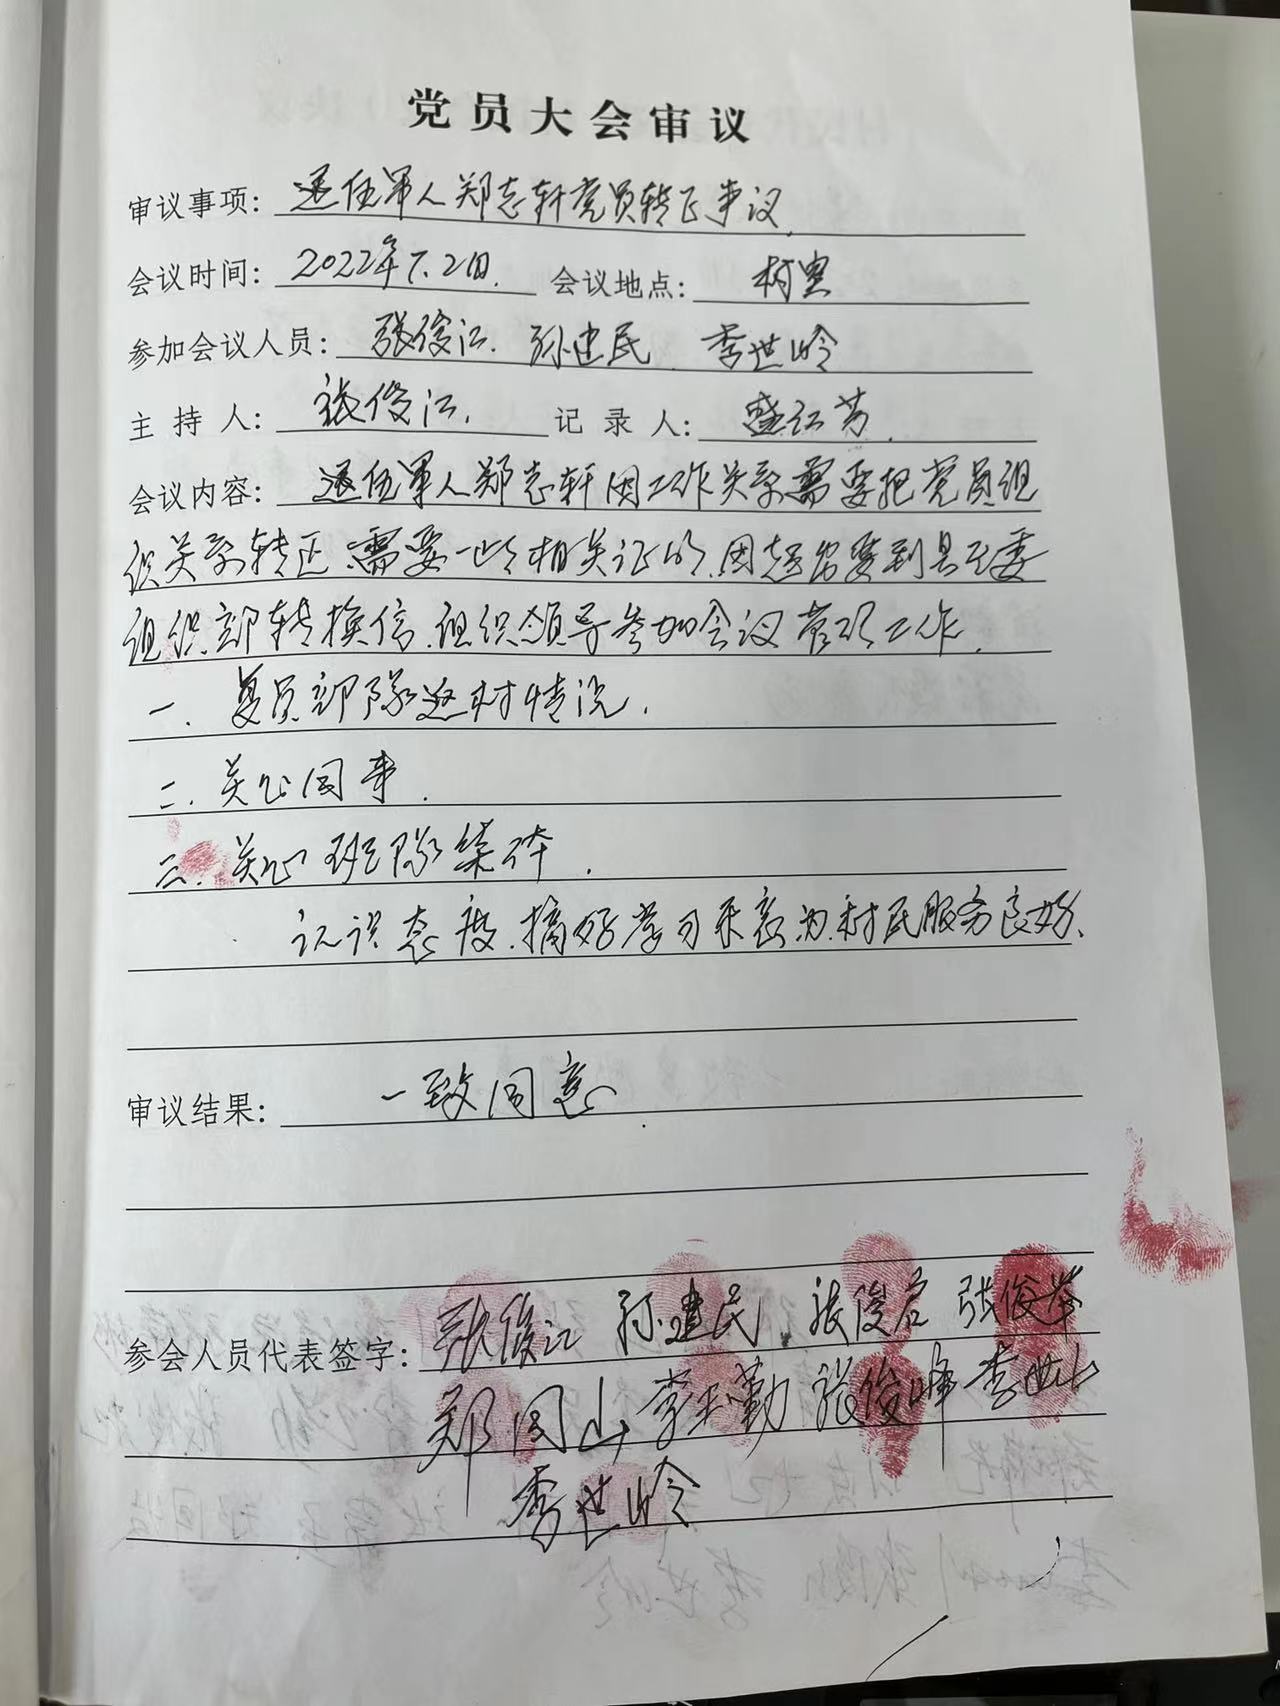 党员大会审议
审议事项：退伍军人郑志轩党员转正事议
会议时间：2022年7.2日. 会议地点：村里
参加会议人员：张俊江. 孙建民 李世岭
主持人：张俊江. 记录人：盛江芳.
会议内容：退伍军人郑志轩因工作关系需要把党员组
织关系转正.需要一些相关证明.因 到县
组织部转换信.组织领导参加会议 工作.
一. 复员部队返村情况.
二. 关心同事.
三. 关心班队集体.
认识态度.搞好学习 为村民服务良好、
审议结果：一致同意.
参会人员代表签字：张俊江 孙建民 张俊启 张俊举
郑同山 李玉勤 张俊峰 李世山
李世岭